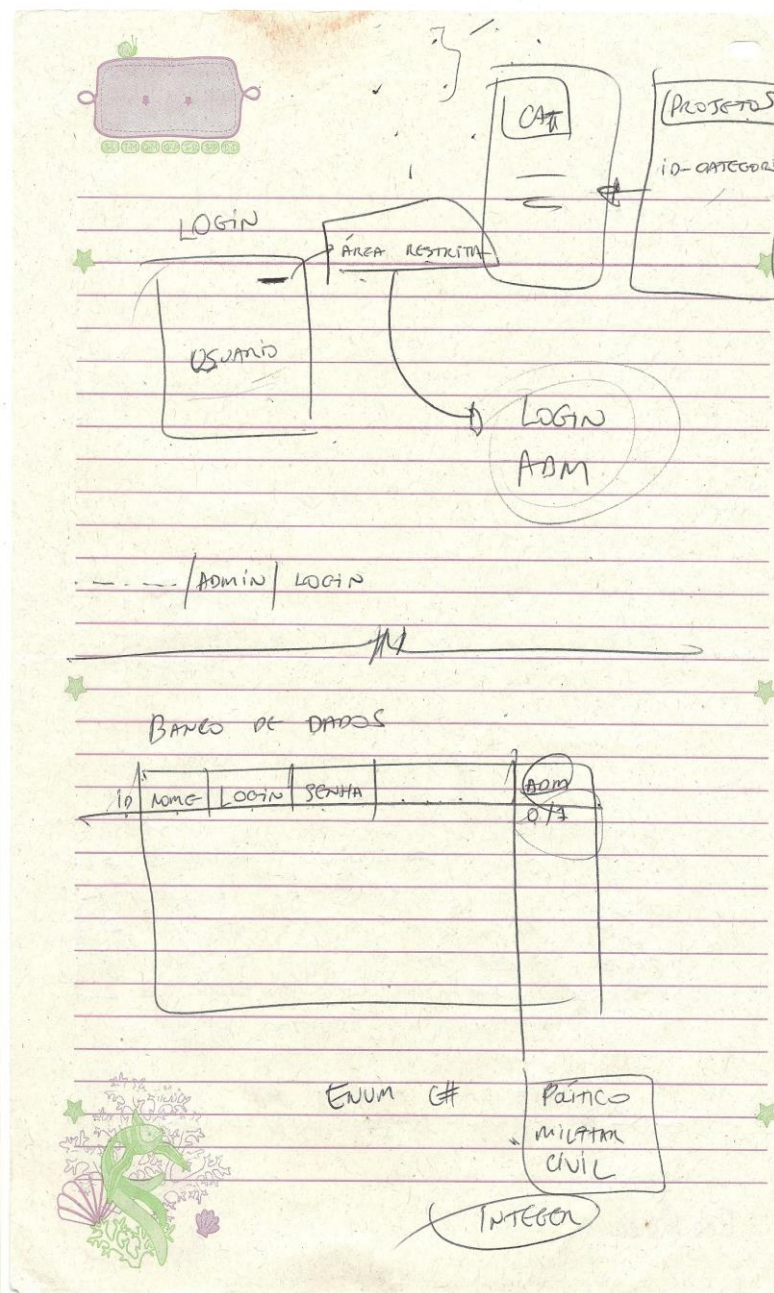 CAT
PROJETOS
ID-CATEGORI
LOGIN
ÁREA RESTRITA
USUARIO
LOGIN
ADM
/ADMIN/ LOGIN
BANCO DE DADOS
ID NOME LOGIN SENHA ....... ADM
0/1
ENUM C#
POLÍTICO
MILITAR
CIVIL
INTEGER